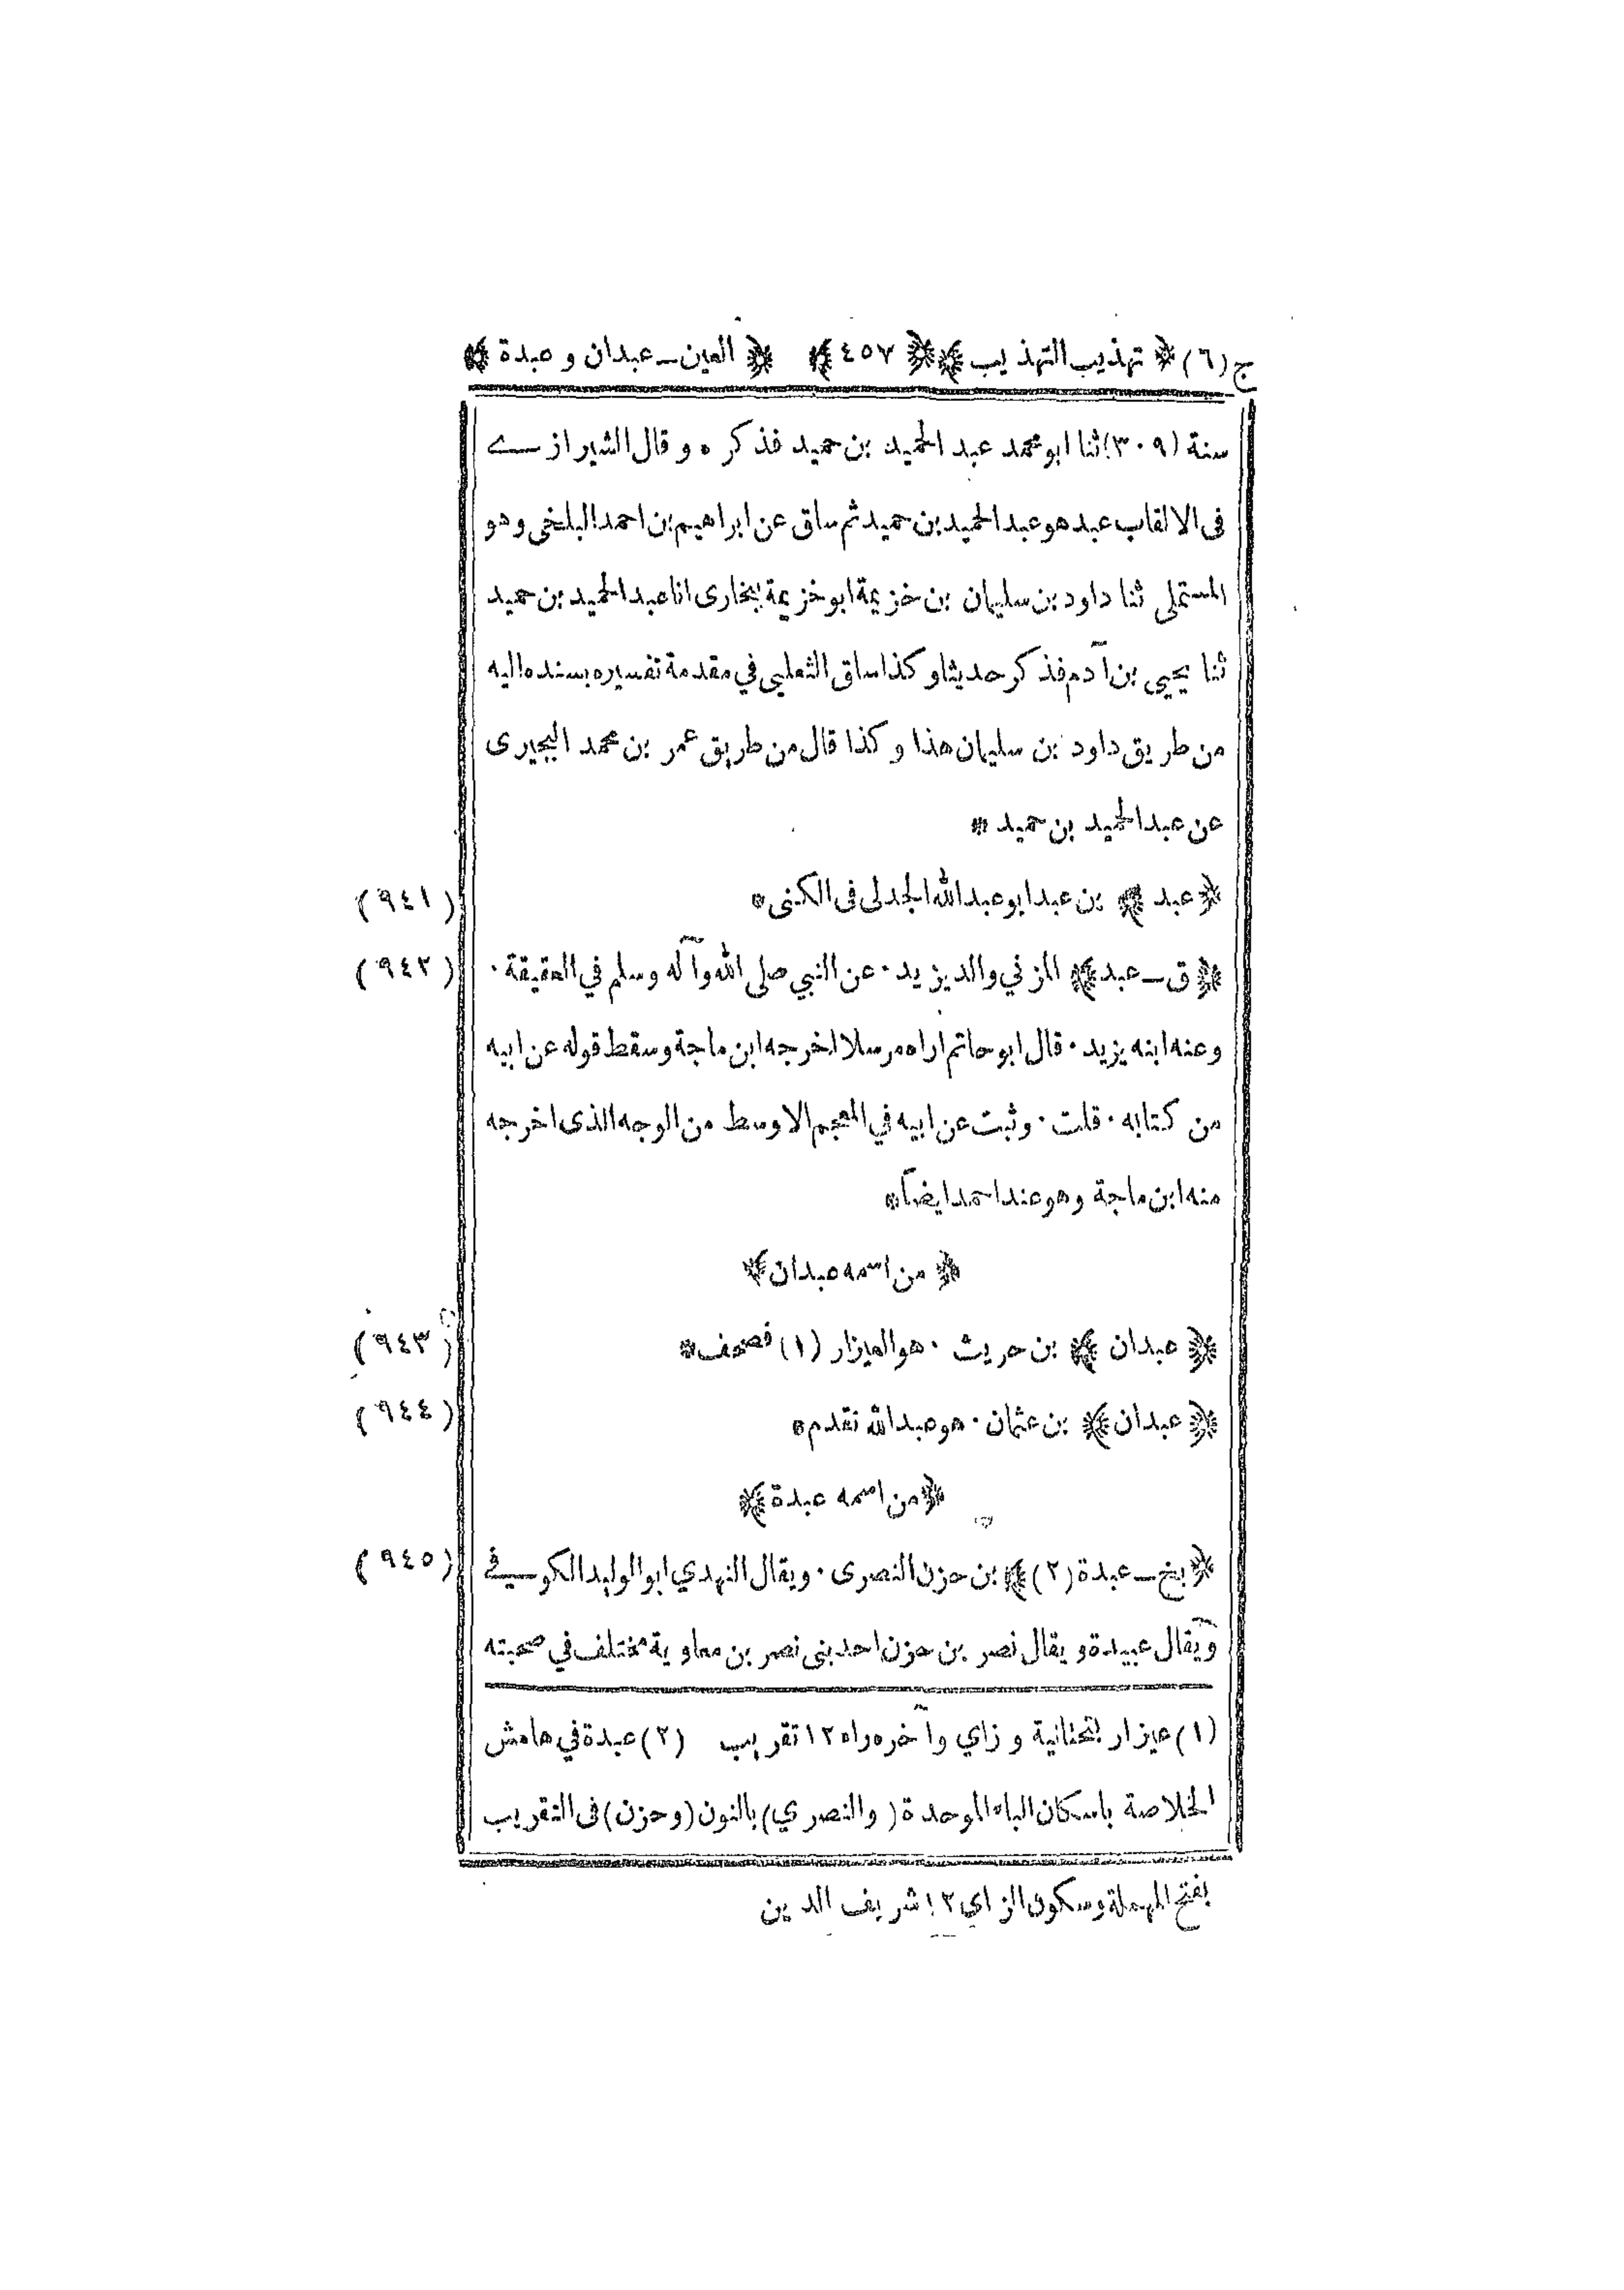 ج(٦) ﴿ تهذيب التهذيب ﴾ ﴿ ٤٥٧ ﴾ ﴿ العين ـ عبدان و عبدة ﴾
سنة (٣٠٩) ثنا ابو محمد عبد الحميد بن حميد فذكره و قال الشيرازي
فى الالقاب عبد هو عبد الحميد بن حميد ثم ساق عن ابراهيم بن احمد البلخى وهو
المستملى ثنا داود بن سليمان بن خزيمة ابو خزيمة ببخارى انا عبد الحميد بن حميد
ثنا يحيى بن آدم فذكر حديثا وكذا ساق الثعلبى في مقدمة تفسيره بسنده اليه
من طريق داود بن سليمان هذا و كذا قال من طريق عمر بن محمد البجيرى
عن عبد الحميد بن حميد *
﴿ عبد ﴾ بن عبد ابو عبد الله الجدلى فى الكنى * (٩٤١)
﴿ ق ـ عبد ﴾ المزني والد يزيد · عن النبي صلى الله وآله وسلم في العقيقة · (٩٤٢)
وعنه ابنه يزيد · قال ابو حاتم اراه مرسلا اخرجه ابن ماجة وسقط قوله عن ابيه
من كتابه · قلت · وثبت عن ابيه في المعجم الاوسط من الوجه الذى اخرجه
منه ابن ماجة وهو عند احمد ايضاً *
﴿ من اسمه عبدان ﴾
﴿ عبدان ﴾ بن حريث · هو العيزار (١) فصحف * (٩٤٣)
﴿ عبدان ﴾ بن عثمان · هو عبد الله تقدم * (٩٤٤)
﴿ من اسمه عبدة ﴾
﴿ بخ ـ عبدة (٢) ﴾ بن حزن النصرى · ويقال النهدي ابو الوليد الكوفي (٩٤٥)
ويقال عبيدة ويقال نصر بن حزن احد بنى نصر بن معاوية مختلف في صحبته
(١) عيزار بتحتانية و زاي وآخره راء ١٢ تقريب (٢) عبدة في هامش
الخلاصة باسكان الباء الموحدة (والنصري) بالنون (وحزن) فى التقريب
بفتح المهملة وسكون الزاي ١٢ شريف الدين